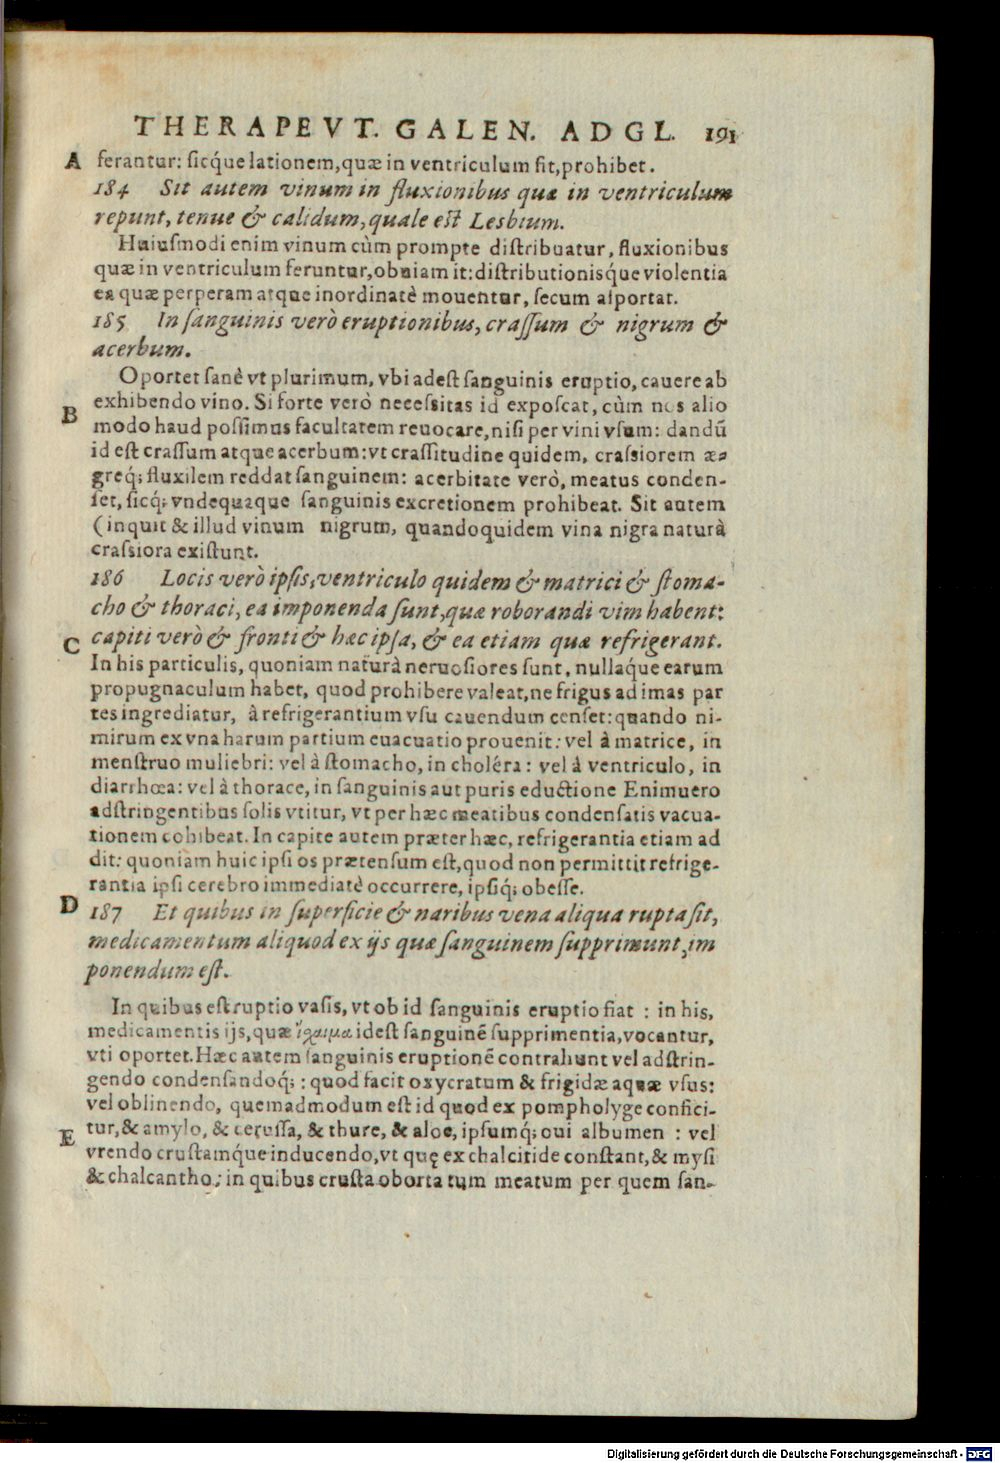 THERAPEVT. GALEN. AD GL. 191
A ferantur: sicq́ue lationem, quæ in ventriculum fit, prohibet.
184 Sit autem vinum in fluxionibus quæ in ventriculum
repunt, tenue & calidum, quale est Lesbium.
Huiusmodi enim vinum cùm prompte distribuatur, fluxionibus
quæ in ventriculum feruntur, obuiam it: distributionisq́ue violentia
ea quæ perperam atque inordinatè mouentur, secum asportat.
185 In sanguinis verò eruptionibus, crassum & nigrum &
acerbum.
Oportet sanè vt plurimum, vbi adest sanguinis eruptio, cauere ab
B exhibendo vino. Si forte verò necessitas id exposcat, cùm nos alio
modo haud possimus facultatem reuocare, nisi per vini vsum: dandū
id est crassum atque acerbum: vt crassitudine quidem, crassiorem æ-
greq́; fluxilem reddat sanguinem: acerbitate verò, meatus conden-
set, sicq́; vndequaque sanguinis excretionem prohibeat. Sit autem
(inquit & illud vinum nigrum, quandoquidem vina nigra naturâ
crassiora existunt.
186 Locis verò ipsis, ventriculo quidem & matrici & stoma-
cho & thoraci, ea imponenda sunt, quæ roborandi vim habent:
C capiti verò & fronti & hæc ipsa, & ea etiam quæ refrigerant.
In his particulis, quoniam naturâ neruosiores sunt, nullaq́ue earum
propugnaculum habet, quod prohibere valeat, ne frigus ad imas par
tes ingrediatur, à refrigerantium vsu cauendum censet: quando ni-
mirum ex vna harum partium euacuatio prouenit: vel à matrice, in
menstruo muliebri: vel à stomacho, in choléra: vel à ventriculo, in
diarrhœa: vel à thorace, in sanguinis aut puris eductione Enimuero
adstringentibus solis vtitur, vt per hæc meatibus condensatis vacua-
tionem cohibeat. In capite autem præter hæc, refrigerantia etiam ad
dit: quoniam huic ipsi os prætensum est, quod non permittit refrige-
rantia ipsi cerebro immediatè occurrere, ipsiq́; obesse.
D 187 Et quibus in superficie & naribus vena aliqua rupta sit,
medicamentum aliquod ex ijs quæ sanguinem supprimunt, im
ponendum est.
In quibus est ruptio vasis, vt ob id sanguinis eruptio fiat : in his,
medicamentis ijs, quæ ἴσχαιμα idest sanguinē supprimentia, vocantur,
vti oportet. Hæc autem sanguinis eruptionē contrahunt vel adstrin-
gendo condensandoq́; : quod facit oxycratum & frigidæ aquæ vsus:
vel oblinendo, quemadmodum est id quod ex pompholyge confici-
E tur, & amylo, & cerussa, & thure, & aloe, ipsumq́; oui albumen : vel
vrendo crustamq́ue inducendo, vt quę ex chalcitide constant, & mysi
& chalcantho: in quibus crusta oborta tum meatum per quem san-
Digitalisierung gefördert durch die Deutsche Forschungsgemeinschaft - DFG